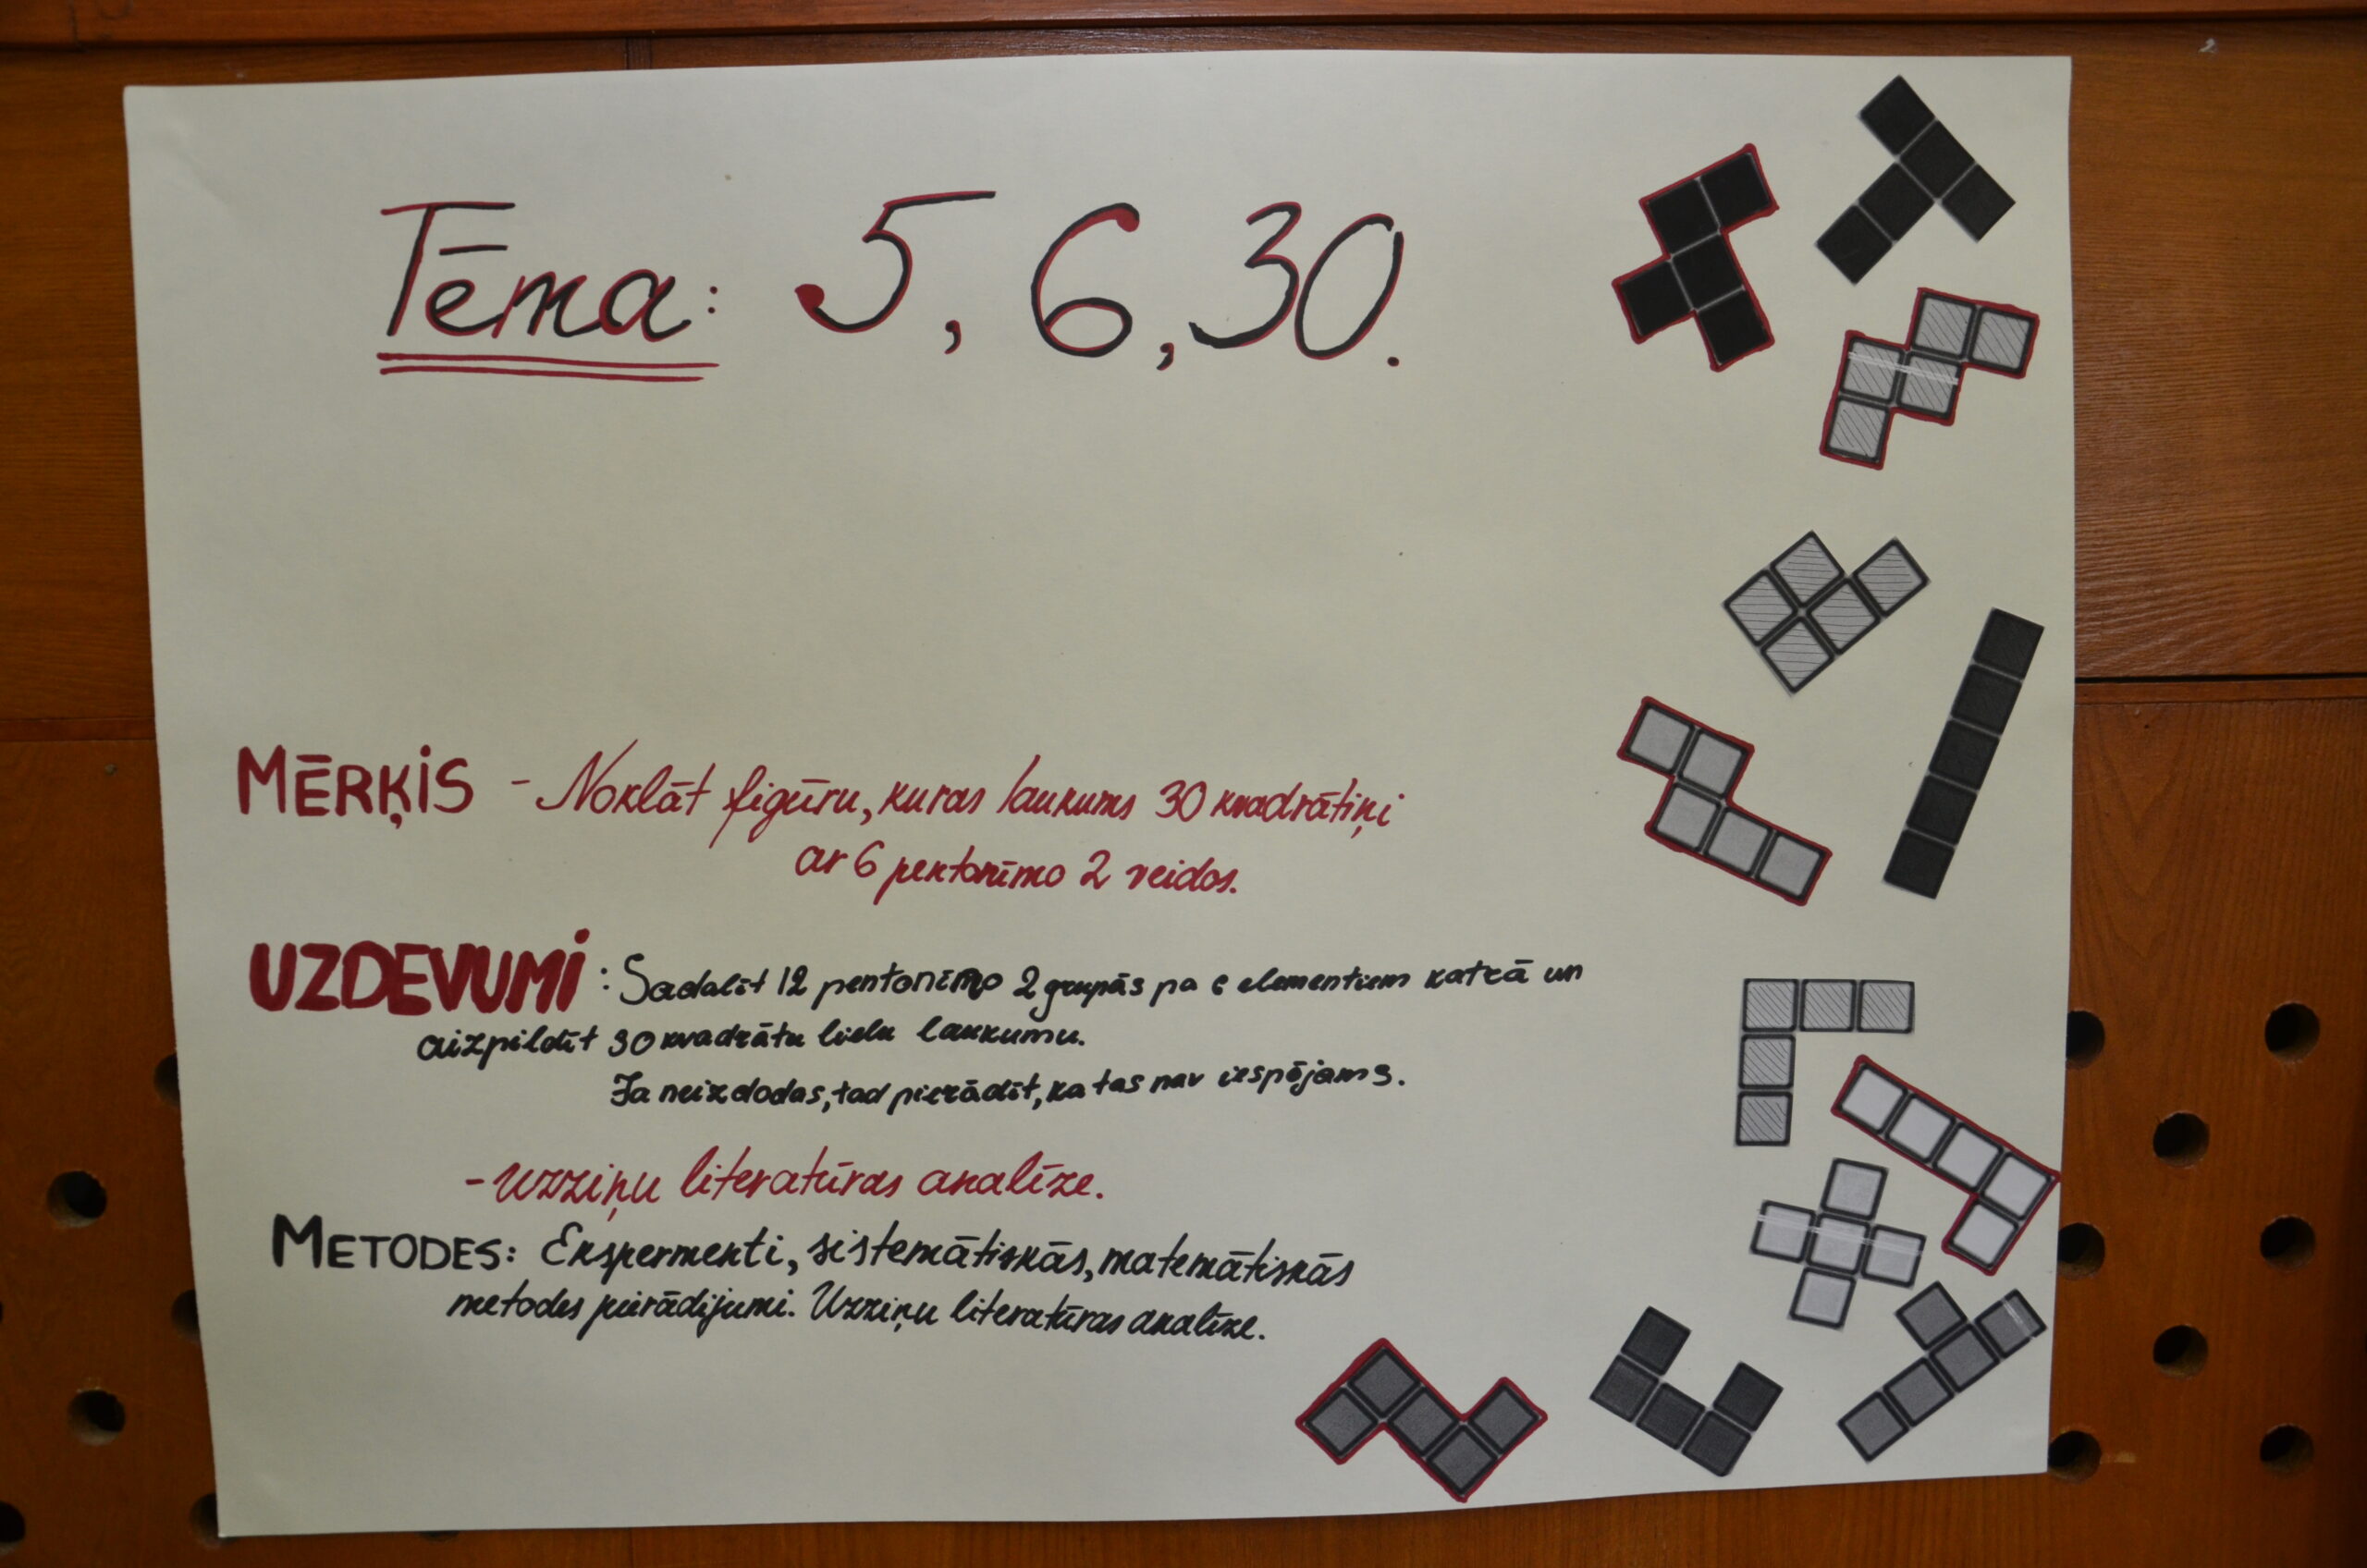 Tēma: 5, 6, 30.
MĒRĶIS - Noklāt figūru, kuras laukums 30 kvadrātiņi
ar 6 pentonimo 2 veidos.
UZDEVUMI: Sadalīt 12 pentonimo 2 grupās pa 6 elementiem katrā un
aizpildīt 30 kvadrātu lielu laukumu.
Ja neizdodas, tad pierādīt, ka tas nav iespējams.
- Uzziņu literatūras analīze.
METODES: Ekspermenti, sistemātiskās, matemātiskās
metodes pierādījumi. Uzziņu literatūras analīze.